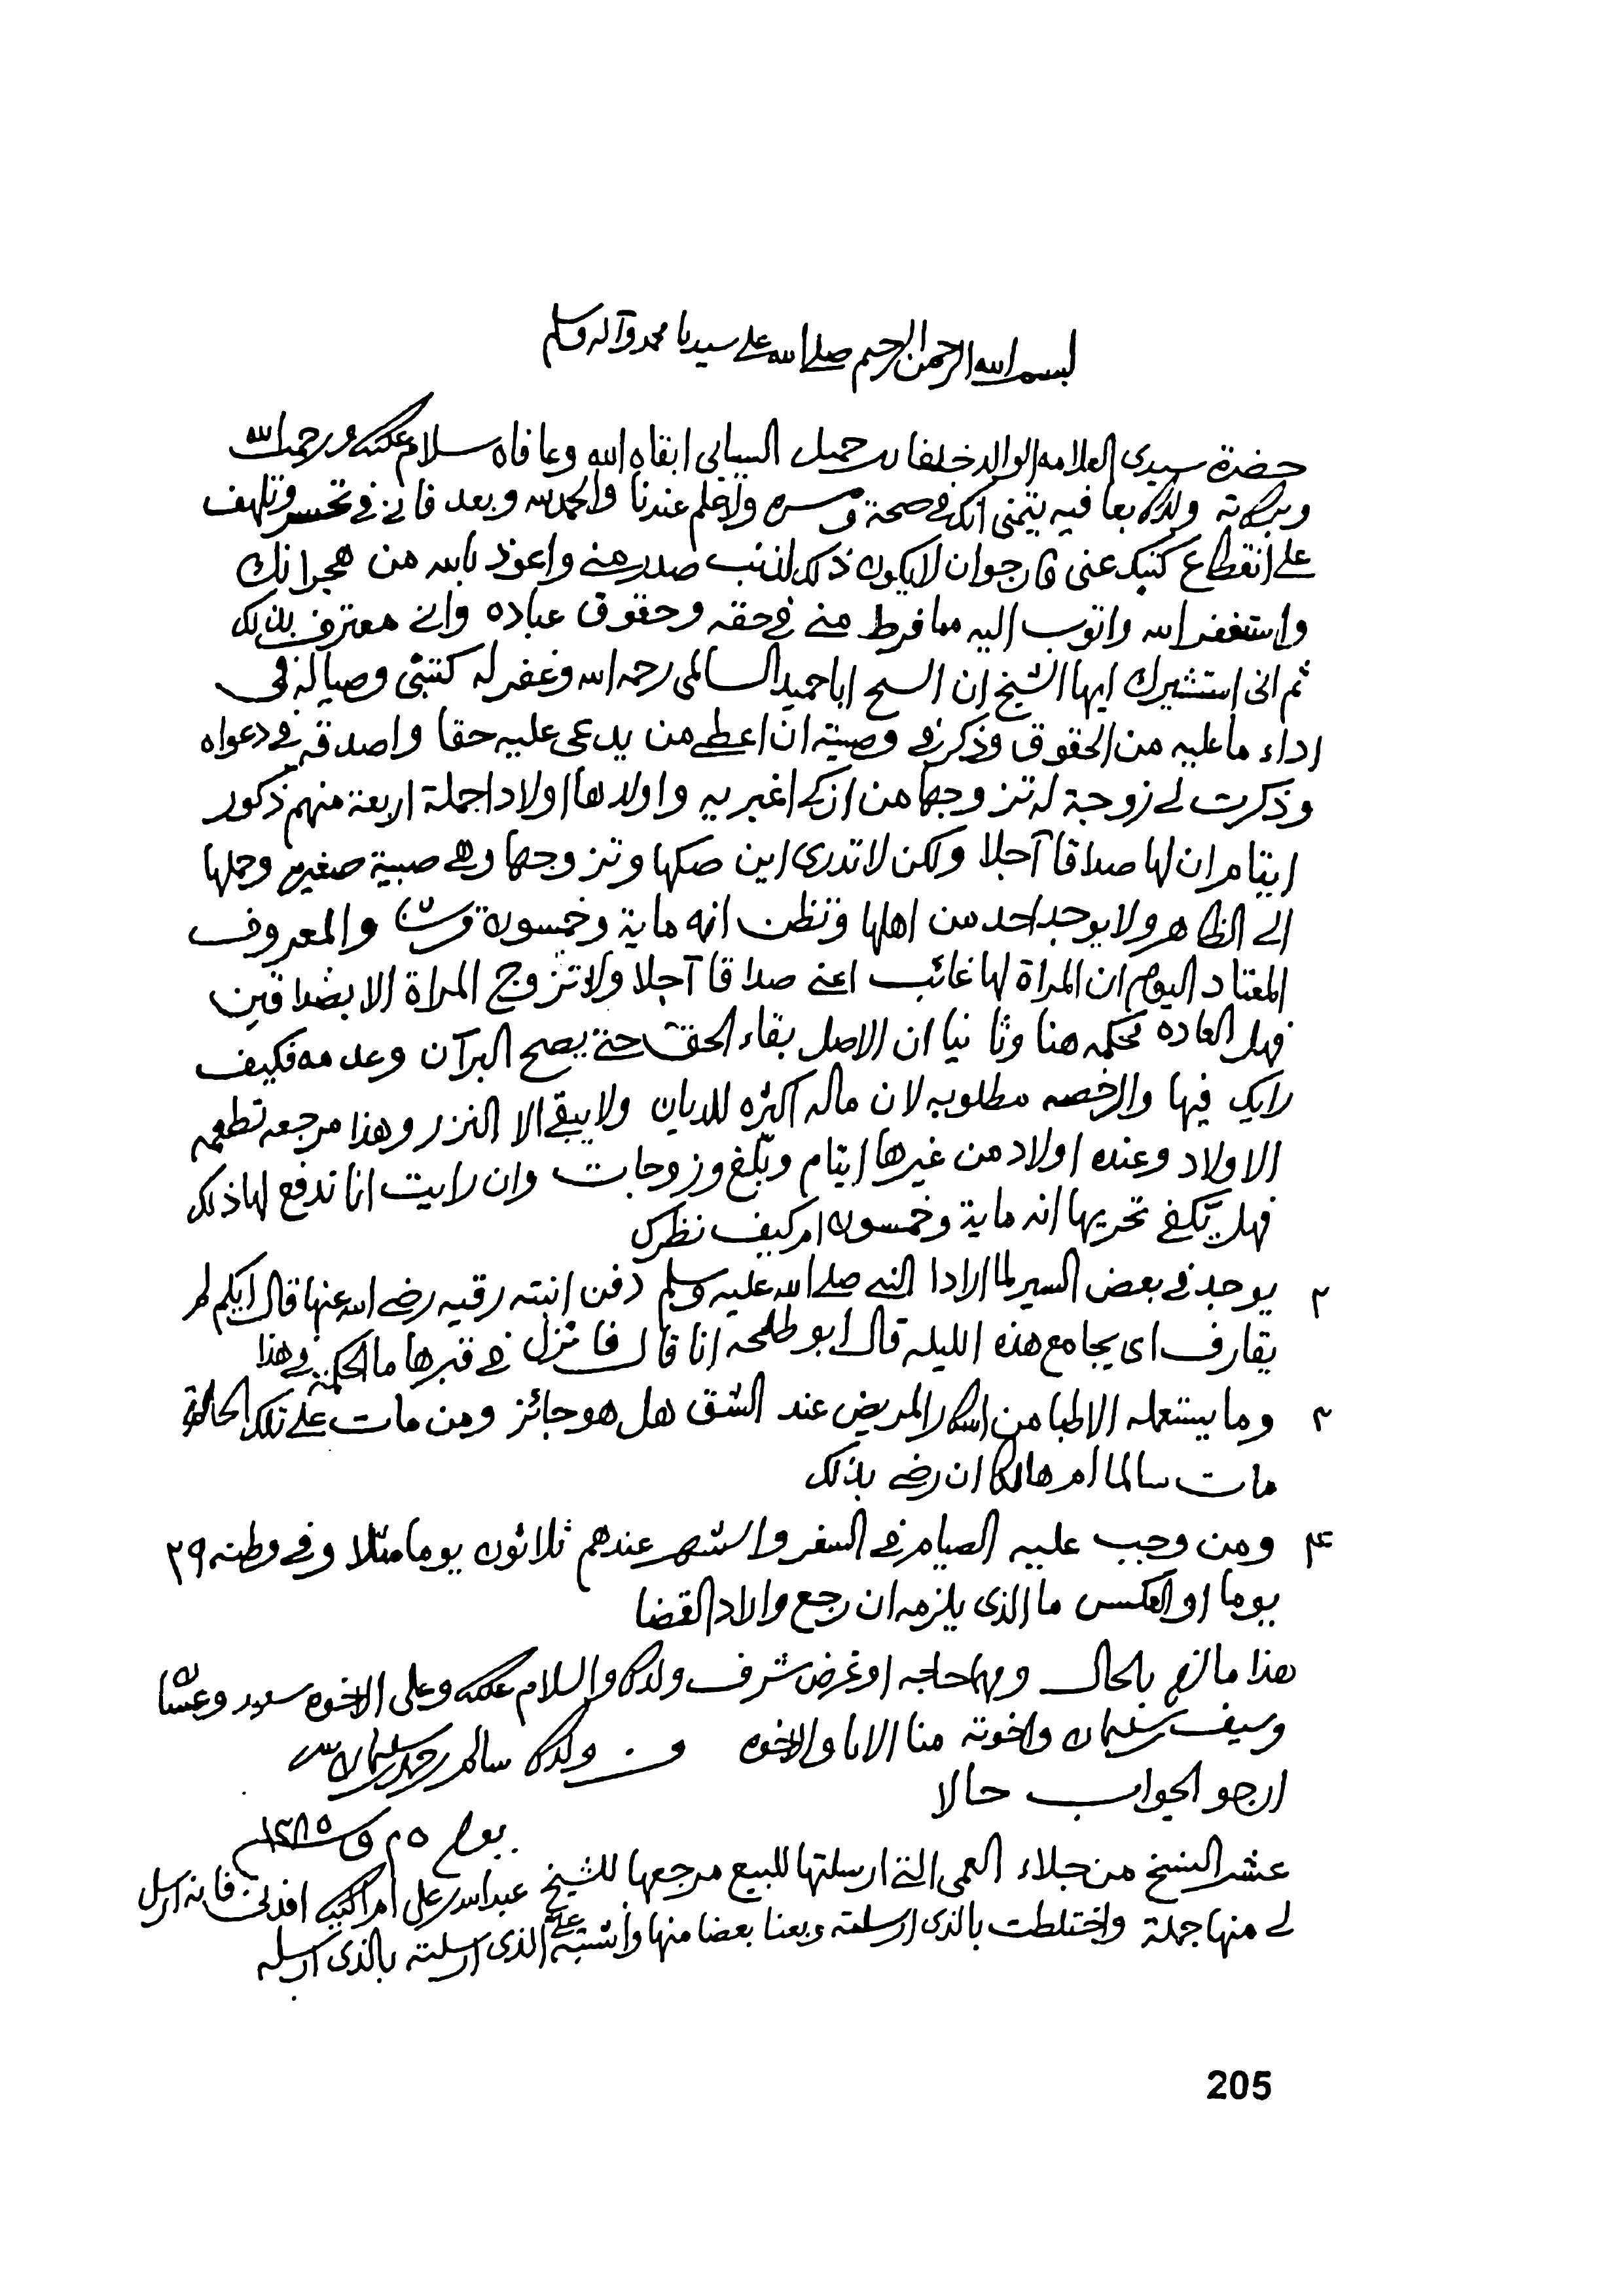 بسم الله الرحمن الرحيم صلى الله على سيدنا محمد وآله وسلم
حضرة سيدي العلامه الوالد خلفان بن جميل السيابي ابقاه الله وعافاه سلام عليكم ورحمة الله
وبركاته ولدك بعافيه يتمنى انك في صحة ومسره ولا علم عندنا والحمد لله وبعد فاني في تحسر وتلهف
على انقطاع كتبك عني فارجو ان لا يكون ذلك لذنب صدر مني واعوذ بالله من هجرانك
واستغفر الله واتوب اليه مما فرط مني في حقه وحقوق عباده واني معترف بذلك
ثم اني استشيرك ايها الشيخ ان الشيخ ابا حميد السالمي رحمه الله وغفر له كتبني وصيا له في
اداء ما عليه من الحقوق وذكر في وصيته ان اعطي من يدعي عليه حقا واصدقه في دعواه
وذكرت لي زوجة له تزوجها من ازكي اغبريه واولدها اولادا جملة اربعة منهم ذكور
ايتام ان لها صداقا آجلا ولكن لا تدري اين صكها وتزوجها وهي صبية صغيره وحملها
الى الظاهر ولا يوجد احد من اهلها وتظن انه ماية وخمسون قرشا والمعروف
المعتاد اليوم ان المراة لها غائب اعني صداقا آجلا ولا تزوج المراة الا بصداقين
فهل العاده محكمه هنا وثانيا ان الاصل بقاء الحق حتى يصح البرآن وعدمه فكيف
رايك فيها والرخصه مطلوبه لان ماله اكثره للديان ولا يبقى الا النزر وهذا مرجعه تطعمه
الاولاد وعنده اولاد من غيرها ايتام وبلغ وزوجات وان رايت انا ندفع لها ذلك
فهل يكفي تحريها انه ماية وخمسون ام كيف نظرك
٢ يوجد في بعض السير لما ارادا النبي صلى الله عليه وسلم دفن ابنته رقيه رضي الله عنها قال ايكم لم
يقارف اي يجامع هذه الليله قال ابو طلحه انا قال فانزل في قبرها ما الحكمة في هذا
٣ وما يستعمله الاطبا من اسكار المريض عند الشق هل هو جائز ومن مات على تلك الحالة
مات سالما ام هالكا ان رضي بذلك
٤ ومن وجب عليه الصيام في السفر والشهر عندهم ثلاثون يوما مثلا وفي وطنه ٢٩
يوما او العكس ما الذي يلزمه ان رجع واراد القضا
هذا ما لزم بالحال ومهما حاجه او غرض شرف ولدك والسلام عليكم وعلى الاخوه سعيد وعيسى
وسيف بن سليمان واخوته منا الابا والاخوه ومن ولدك سالم بن حمد بن سليمان
ارجو الجواب حالا
يوم ٢٥
عشر النسخ من جلاء العمى التي ارسلتها للبيع مرجعها للشيخ عبدالله بن علي ام اليك افدني فانه ارسل
لي منها جملة واختلطت بالذي ارسلته وبعنا بعضا منها واشتبه علي الذي ارسلته بالذي ارسله
205